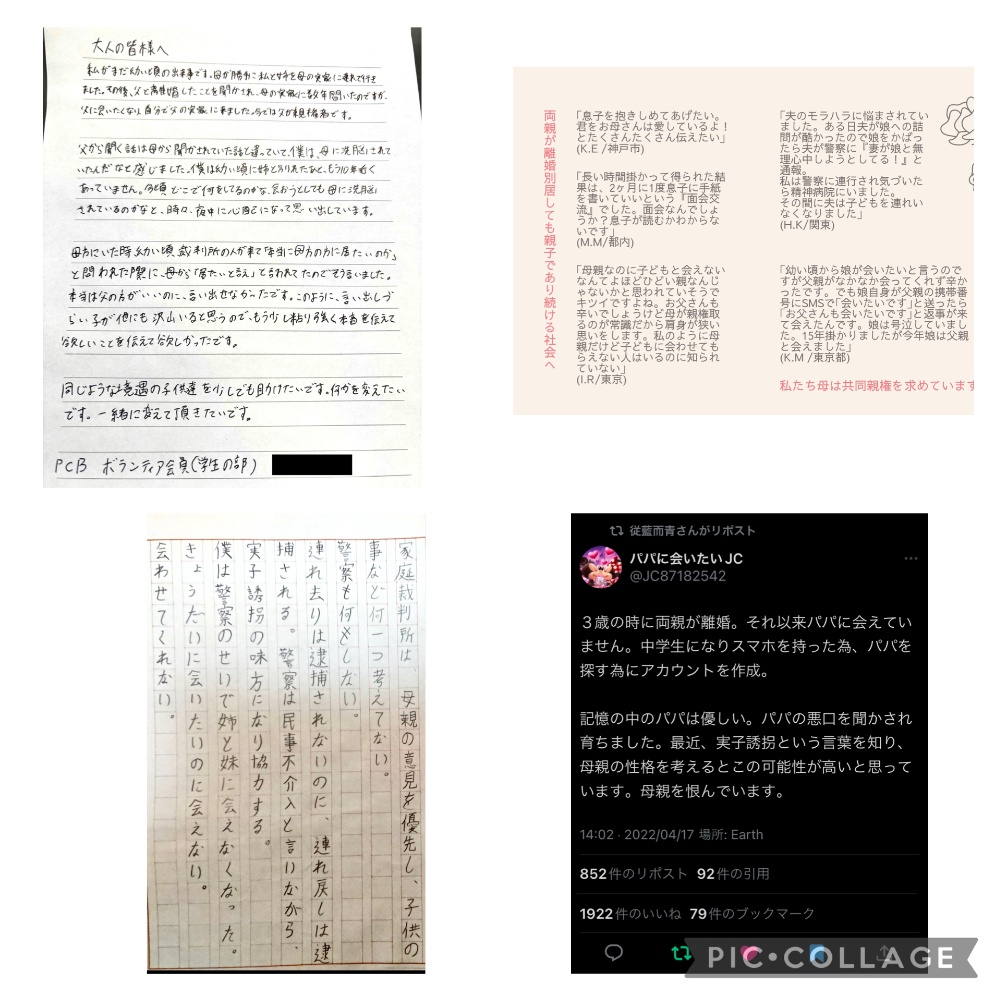 大人の皆様へ
私がまだ幼い頃の出来事です。母が勝手に私と姉を母の実家に連れて行き
ました。その後、父と離婚したことを聞かされ、母の実家に数年間いたのですが、
父に会いたくなり自分で父の実家に来ました。今では父が親権者です。
父から聞く話は母から聞かされていた話と違っていて、僕は、母に洗脳されて
いたんだなと感じました。僕は幼い頃に姉と別れたあと、もう10年近く
あっていません。今頃どこで何をしてるのかな、会おうとしても母に洗脳
されているのかなと、時々、夜中に心配になって思い出しています。
母方にいた時幼い頃裁判所の人が来て「本当に母方の方に居たいのか」
と問われた際に、母から「居たいと言え」て言われてたのでそう言いました。
本当は父の方がいいのに、言い出せなかったです。このように、言い出しづ
らい子が他にも沢山いると思うので、もう少し粘り強く本音を伝えて
欲しいことを伝えて欲しかったです。
同じような境遇の子供達を少しでも助けたいです。何かを変えたい
です。一緒に変えて頂きたいです。
PCB ボランティア会員(学生の部)
両親が離婚別居しても親子であり続ける社会へ
「息子を抱きしめてあげたい。
君をお母さんは愛しているよ！
とたくさんたくさん伝えたい」
(K.E /神戸市)
「長い時間掛かって得られた結
果は、2ヶ月に1度息子に手紙
を書いていいという『面会交
流』でした。面会なんでしょ
うか？息子が読むかわからな
いです」
(M.M/都内)
「母親なのに子どもと会えない
なんてよほどひどい親なんじ
ゃないかと思われていそうで
キツイですよね。お父さんも
辛いでしょうけど母が親権取
るのが常識だから肩身が狭い
思いをします。私のように母
親だけど子どもに会わせても
らえない人はいるのに知られ
ていない」
(I.R/東京)
「夫のモラハラに悩まされてい
ました。ある日夫が娘への詰
問が酷かったので娘をかばっ
たら夫が警察に『妻が娘と無
理心中しようとしてる！』と
通報。
私は警察に連行され気づいた
ら精神病院にいました。
その間に夫は子どもを連れい
なくなりました」
(H.K/関東)
「幼い頃から娘が会いたいと言うので
すが父親がなかなか会ってくれず辛か
ったです。でも娘自身が父親の携帯番
号にSMSで「会いたいです」と送ったら
「お父さんも会いたいです」と返事が来
て会えたんです。娘は号泣していまし
た。15年掛かりましたが今年娘は父親
と会えました」
(K.M /東京都)
私たち母は共同親権を求めています
家庭裁判所は、母親の意見を優先し、子供の
事など何一つ考えてない。
警察も何もしない。
連れ去りは逮捕されないのに、連れ戻しは逮
捕される。警察は民事不介入と言いながら、
実子誘拐の味方になり協力する。
僕は警察のせいで姉と妹に会えなくなった。
きょうだいに会いたいのに会えない。
会わせてくれない。
従藍而青さんがリポスト
パパに会いたいJC
@JC87182542
３歳の時に両親が離婚。それ以来パパに会えてい
ません。中学生になりスマホを持った為、パパを
探す為にアカウントを作成。
記憶の中のパパは優しい。パパの悪口を聞かされ
育ちました。最近、実子誘拐という言葉を知り、
母親の性格を考えるとこの可能性が高いと思って
います。母親を恨んでいます。
14:02 · 2022/04/17 場所: Earth
852件のリポスト 92件の引用
1922件のいいね 79件のブックマーク
PIC•COLLAGE